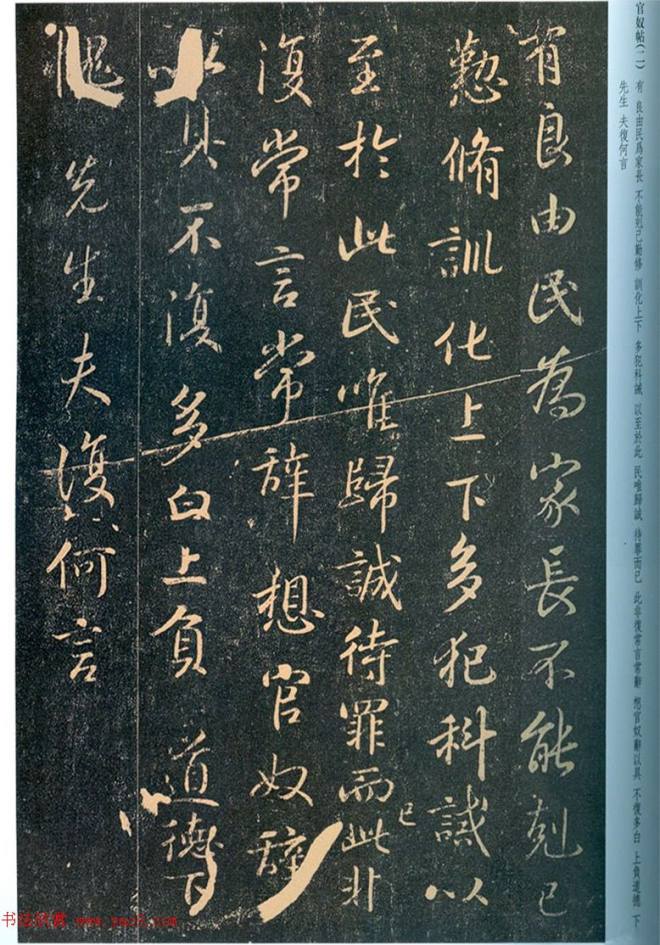 官奴帖(二) 有 良由民爲家長 不能剋己勤修 訓化上下 多犯科誡 以至於此 民唯歸誠 待罪而已 此非復常言常辭 想官奴辭以具 不復多白 上負道德 下
先生 夫復何言
有良由民為家長不能剋己
懃脩訓化上下多犯科誡以
至於此民唯歸誠待罪而已此非
復常言常辞想官奴辞
以具不復多白上負道德下
愧先生夫復何言
书法欣赏 www.yac8.com